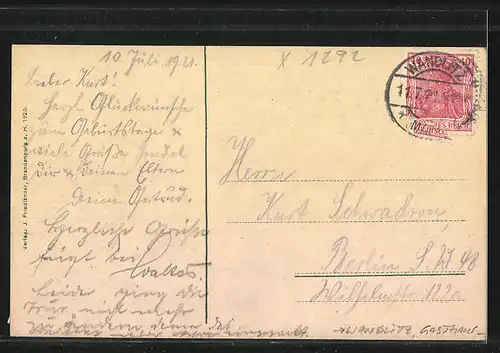 10 Juli 1921.
x 1292
Lieber Kurt!
Herzl. Glückwünsche
zum Geburtstage &
viele Grüße sendet
Dir & Deinen Eltern
Deine Gertrud.
Herzliche Grüße
fügt bei
Leider ging die
nicht mehr
zu ändern, denn das
WANDLITZ
11.7.21
Herrn
Kurt Schwadron,
Berlin S.W 48
Wilhelmstr.
WANDLITZ, GASTHAUS
Verlag: J. Friedländer, Brandenburg a. H. 1920.